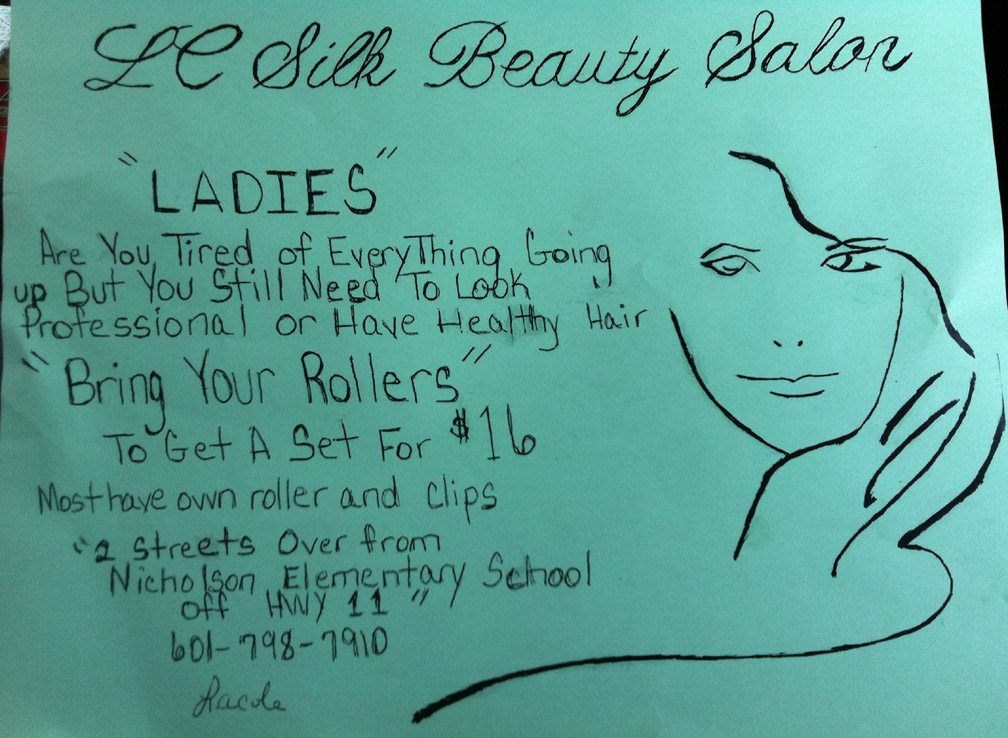 LC Silk Beauty Salon
"LADIES"
Are You Tired of EveryThing Going
up But You Still Need To Look
Professional or Have Healthy Hair
"Bring Your Rollers"
To Get A Set For $16
Most have own roller and clips
"2 Streets Over from
Nicholson Elementary School
off HWY 11"
601-798-7910